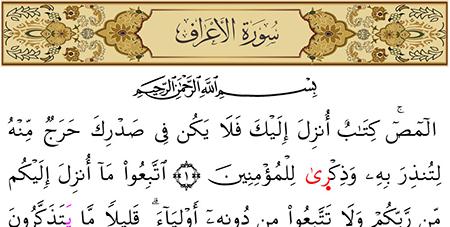 سُورَةُ الأَعْرَافِ
بِسْمِ اللَّهِ الرَّحْمَٰنِ الرَّحِيمِ
الٓمٓصٓۚ كِتَٰبٌ أُنزِلَ إِلَيْكَ فَلَا يَكُن فِى صَدْرِكَ حَرَجٌ مِّنْهُ
لِتُنذِرَ بِهِۦ وَذِكْرٜىٰ لِلْمُؤْمِنِينَ ﴿١﴾ ٱتَّبِعُوا۟ مَآ أُنزِلَ إِلَيْكُم
مِّن رَّبِّكُمْ وَلَا تَتَّبِعُوا۟ مِن دُونِهِۦٓ أَوْلِيَآءَۗ قَلِيلًا مَّا يَتَذَكَّرُونَ